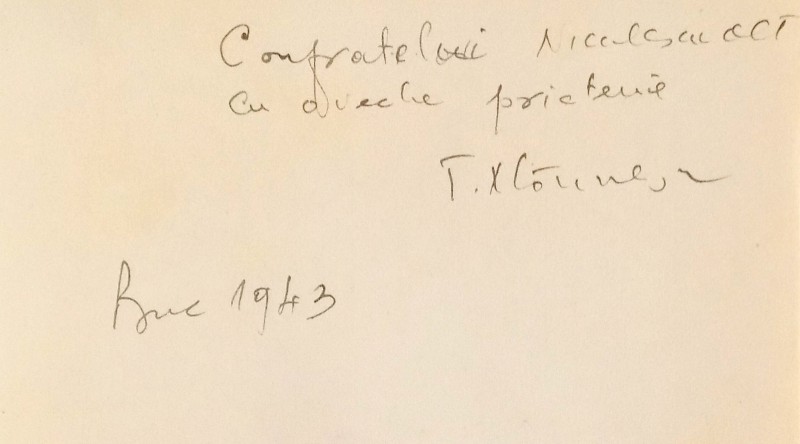 Confratelui Nicolescu
cu o veche prietenie
T.
Buc 1943